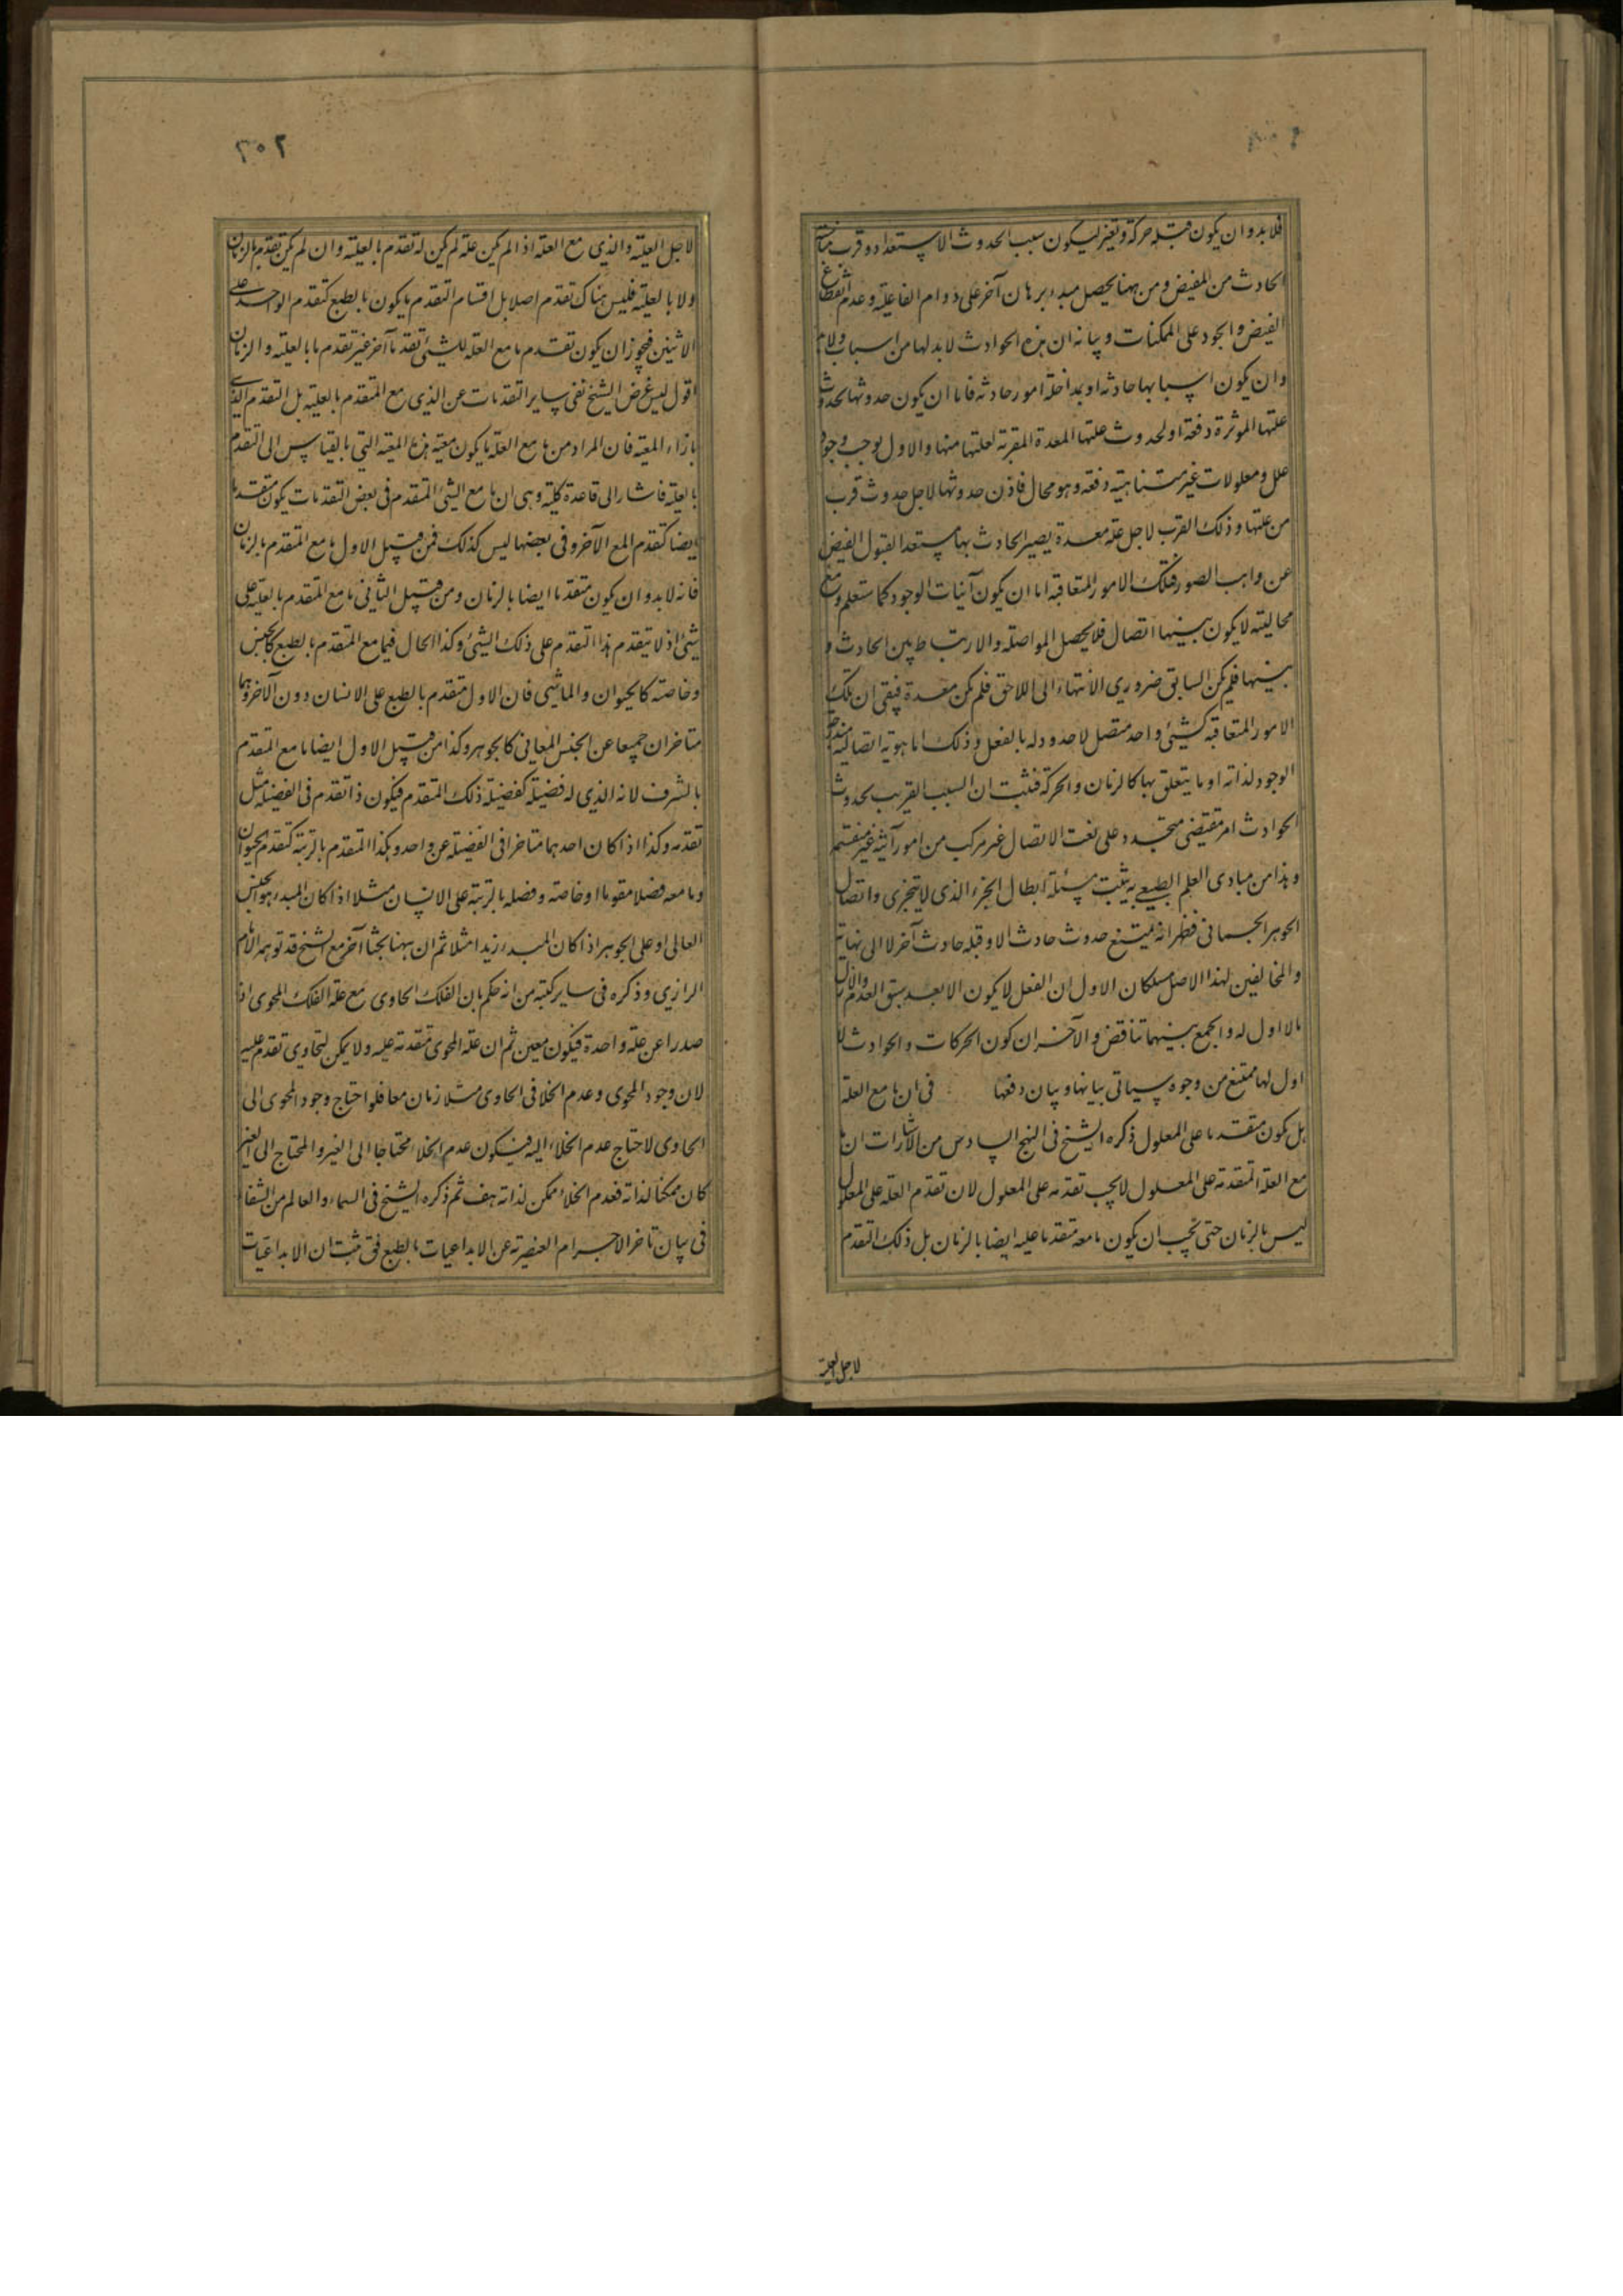 فلا بد و ان يكون قبله حركة و تغير ليكون سبب الحدوث الاستعداد و قرب مناسبة
الحادث من المفيض و من ههنا يحصل مبدء برهان آخر على دوام الفاعلية و عدم انقطاع
الفيض و الجود على الممكنات و بيانه ان هذه الحوادث لا بد لها من اسباب و لابد
و ان يكون اسبابها حادثه او بمداخلة امور حادثه فاما ان يكون حدوثها لحدوث
علتها الموثرة دفعة او لحدوث علتها المعدة المقربة لعلتها منها و الاول يوجب وجود
علل و معلولات غير متناهية دفعة و هو محال فاذن حدوثها لاجل حدوث قرب
من علتها و ذلك القرب لاجل علة معدة يصير الحادث بها مستعدا لقبول الفيض
عن واهب الصور فتلك الامور المتعاقبة اما ان يكون آنيات الوجود كما ستعلم و مع
محاليته لا يكون بينهما اتصال فلا يحصل المواصلة و الارتباط بين الحادث و
بينها فلم يكن السابق ضروري الانتهاء الى اللاحق فلم يكن معدة فبقى ان تلك
الامور المتعاقبة كشئ واحد متصل لا حدود له بالفعل و ذلك اما هوية اتصالية متدرج
الوجود لذاته او ما يتعلق بها كالزمان و الحركة فثبت ان السبب القريب لحدوث
الحوادث امر مقتضى متجدد على نعت الاتصال غير مركب من امور آنية غير منقسم
و هذا من مبادى العلم الطبيعي به يثبت مسئلة ابطال الجزء الذى لا يتجزى و اتصال
الجوهر الجسمانى فظهر انه يمتنع حدوث حادث الا و قبله حادث آخر لا الى نهاية
و المخالفين لهذا الاصل مسلكان الاول ان الفعل لا يكون الا بعد سبق العدم و الازل
ما لا اول له و الجمع بينهما تناقض و الآخران كون الحركات و الحوادث لا
اول لها ممتنع من وجوه سياتى بيانها و بيان دفعها فى ان ما مع العلة
هل يكون متقدما على المعلول ذكره الشيخ فى النهج السادس من الاشارات ان ما
مع العلة المتقدمة على المعلول لا يجب تقدمه على المعلول لان تقدم العلة على المعلول
ليس بالزمان حتى يجب ان يكون ما معه متقدما عليه ايضا بالزمان بل ذلك التقدم
لاجل العلية
٣٠٢
لاجل العلية و الذي مع العلة اذا لم يكن علة لم يكن له تقدم بالعلية و ان لم يكن تقدم بالزمان
و لا بالعلية فليس هناك تقدم اصلا بل اقسام التقدم ما يكون بالطبع كتقدم الواحد على
الاثنين فيجوز ان يكون تقدم ما مع العلة للشئ تقدما آخر غير تقدم ما بالعلية و الزمان
اقول ليس غرض الشيخ نفى ساير التقدمات عن الذى مع المتقدم بالعلية بل التقدم الذى
بازاء المعية فان المراد من ما مع العلة ما يكون معيته هذه المعية التى بالقياس الى التقدم
بالعلية فاشار الى قاعدة كلية و هى ان ما مع الشئ المتقدم فى بعض التقدمات يكون متقدما
ايضا كتقدم المع الآخر و فى بعضها ليس كذلك فمن قبيل الاول ما مع المتقدم بالزمان
فانه لا بد و ان يكون متقدما ايضا بالزمان و من قبيل الثانى ما مع المتقدم بالعلية على
شئ اذ لا يتقدم هذا التقدم على ذلك الشئ و كذا الحال فيما مع المتقدم بالطبع كالجنس
و خاصته كالحيوان و الماشى فان الاول متقدم بالطبع على الانسان دون الآخر و هما
متاخران جميعا عن الجنس المعانى كالجوهر و كذا من قبيل الاول ايضا ما مع المتقدم
بالشرف لانه الذي له فضيلة كفضيلة ذلك المتقدم فيكون ذا تقدم فى الفضيلة مثل
تقدمه و كذا اذا كان احدهما متاخرا فى الفضيلة عن واحد و هكذا المتقدم بالرتبة كتقدم الحيوان
و ما معه فضلا مقوما او خاصته و فضله بالرتبة على الانسان مثلا اذا كان المبدء هو الجنس
العالى او على الجوهر اذا كان المبدء زيدا مثلا ثم ان ههنا بحثا آخر مع الشيخ قد توهمه الامام
الرازي و ذكره فى ساير كتبه من انه حكم بان الفلك الحاوى مع علة الفلك المحوى اذ
صدرا عن علة واحدة فيكون معين ثم ان علة المحوى متقدمة عليه و لا يمكن للحاوى تقدم عليه
لان وجود المحوى و عدم الخلا فى الحاوى مثلا زمان معا فلو احتاج وجود المحوى الى
الحاوى لاحتاج عدم الخلاء اليه فيكون عدم الخلا محتاجا الى الغير و المحتاج الى الغير
كان ممكنا لذاته فعدم الخلاء ممكن لذاته هف ثم ذكره الشيخ فى السماء و العالم من الشفا
فى بيان تاخر الاجرام العنصرية عن الابداعيات بالطبع فى ثبت ان الابداعيات